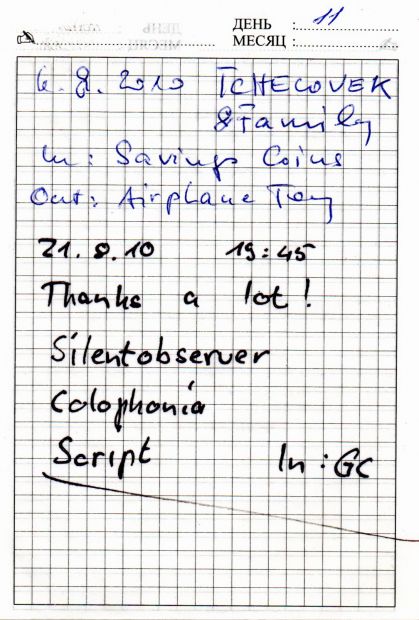 ДЕНЬ : 11
МЕСЯЦ :
6.8.2010 TCHECOVEK
& Family
In: Savings Coins
Out: Airplane Toy
21.8.10 19:45
Thanks a lot!
Silentobserver
Colophonia
Script In: GC